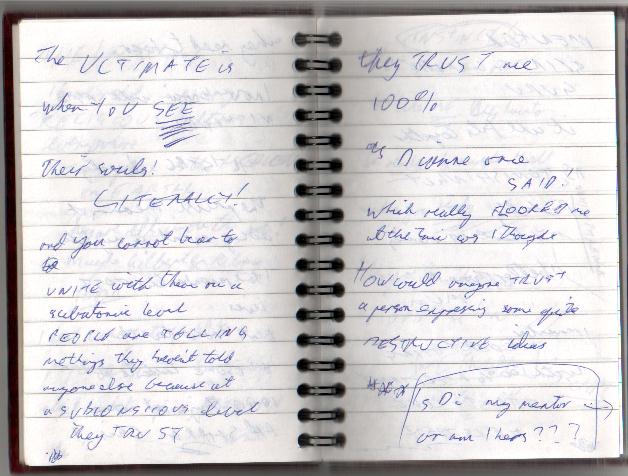 The ULTIMATE is
when YOU SEE
Their souls!
LITERALLY!
and you cannot bear to
UNITE with them on a
subatomic level
PEOPLE are TELLING
me things they haven't told
anyone else because at
a SUBCONSCIOUS level
they TRUST
they TRUST me
100%
as Dianne once
SAID!
which really FLOORED me
at the time cos I thought
How could anyone TRUST
a person expressing some quite
DESTRUCTIVE ideas
Is Di my mentor →
or am I hers???